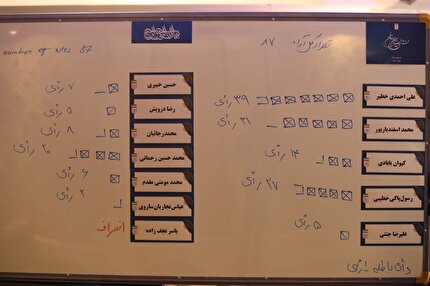 number of votes 87
تعداد کل آراء ۸۷
علی احمدی خطیر ۳۹ رأی
محمد اسفندیارپور ۳۱ رأی
کیوان بابادی ۱۴ رأی
رسول پاکی خطیبی ۲۷ رأی
علیرضا جنتی ۵ رأی
حسین خبیری ۷ رأی
رضا درویش ۵ رأی
محمدرجائیان ۸ رأی
محمد حسین رحمتی ۲۰ رأی
محمد مومنی مقدم ۶ رأی
عباس نجاریان ساروی ۲ رأی
یاسر نجف زاده انصراف
رأی باطله ۱ رأی